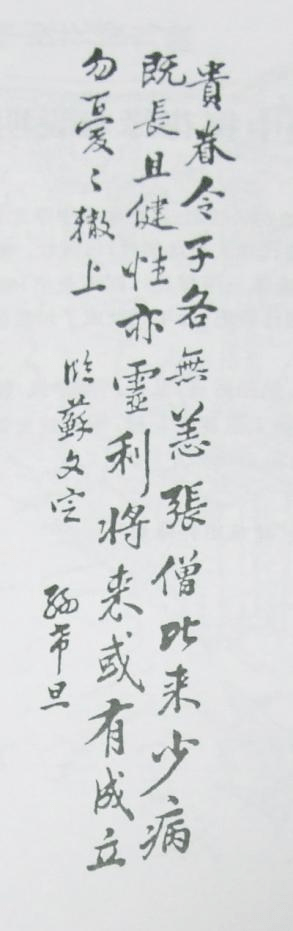 貴眷令子各無恙張僧比来少病
既長且健性亦靈利將来或有成立
勿憂〻轍上
臨蘇文定
孫希旦